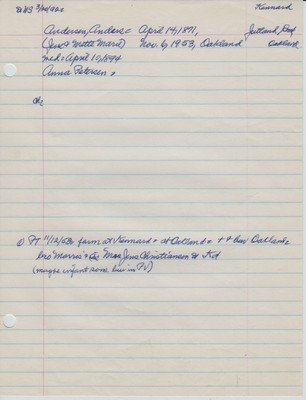 Kennard
Andersen, Anders = April 14, 1871, Jutland, Den
(Jens & Mette Marie) Nov. 6, 1953, Oakland Oakland
md: April 10, 1894
Anna Petersen =
ch:
① FT 11/12/53 farm at Kennard = at Oakland = ++ bur Oakland =
bro Morris & Mrs Jens Christiansen at Kd
(maybe infant sons bur in FV)